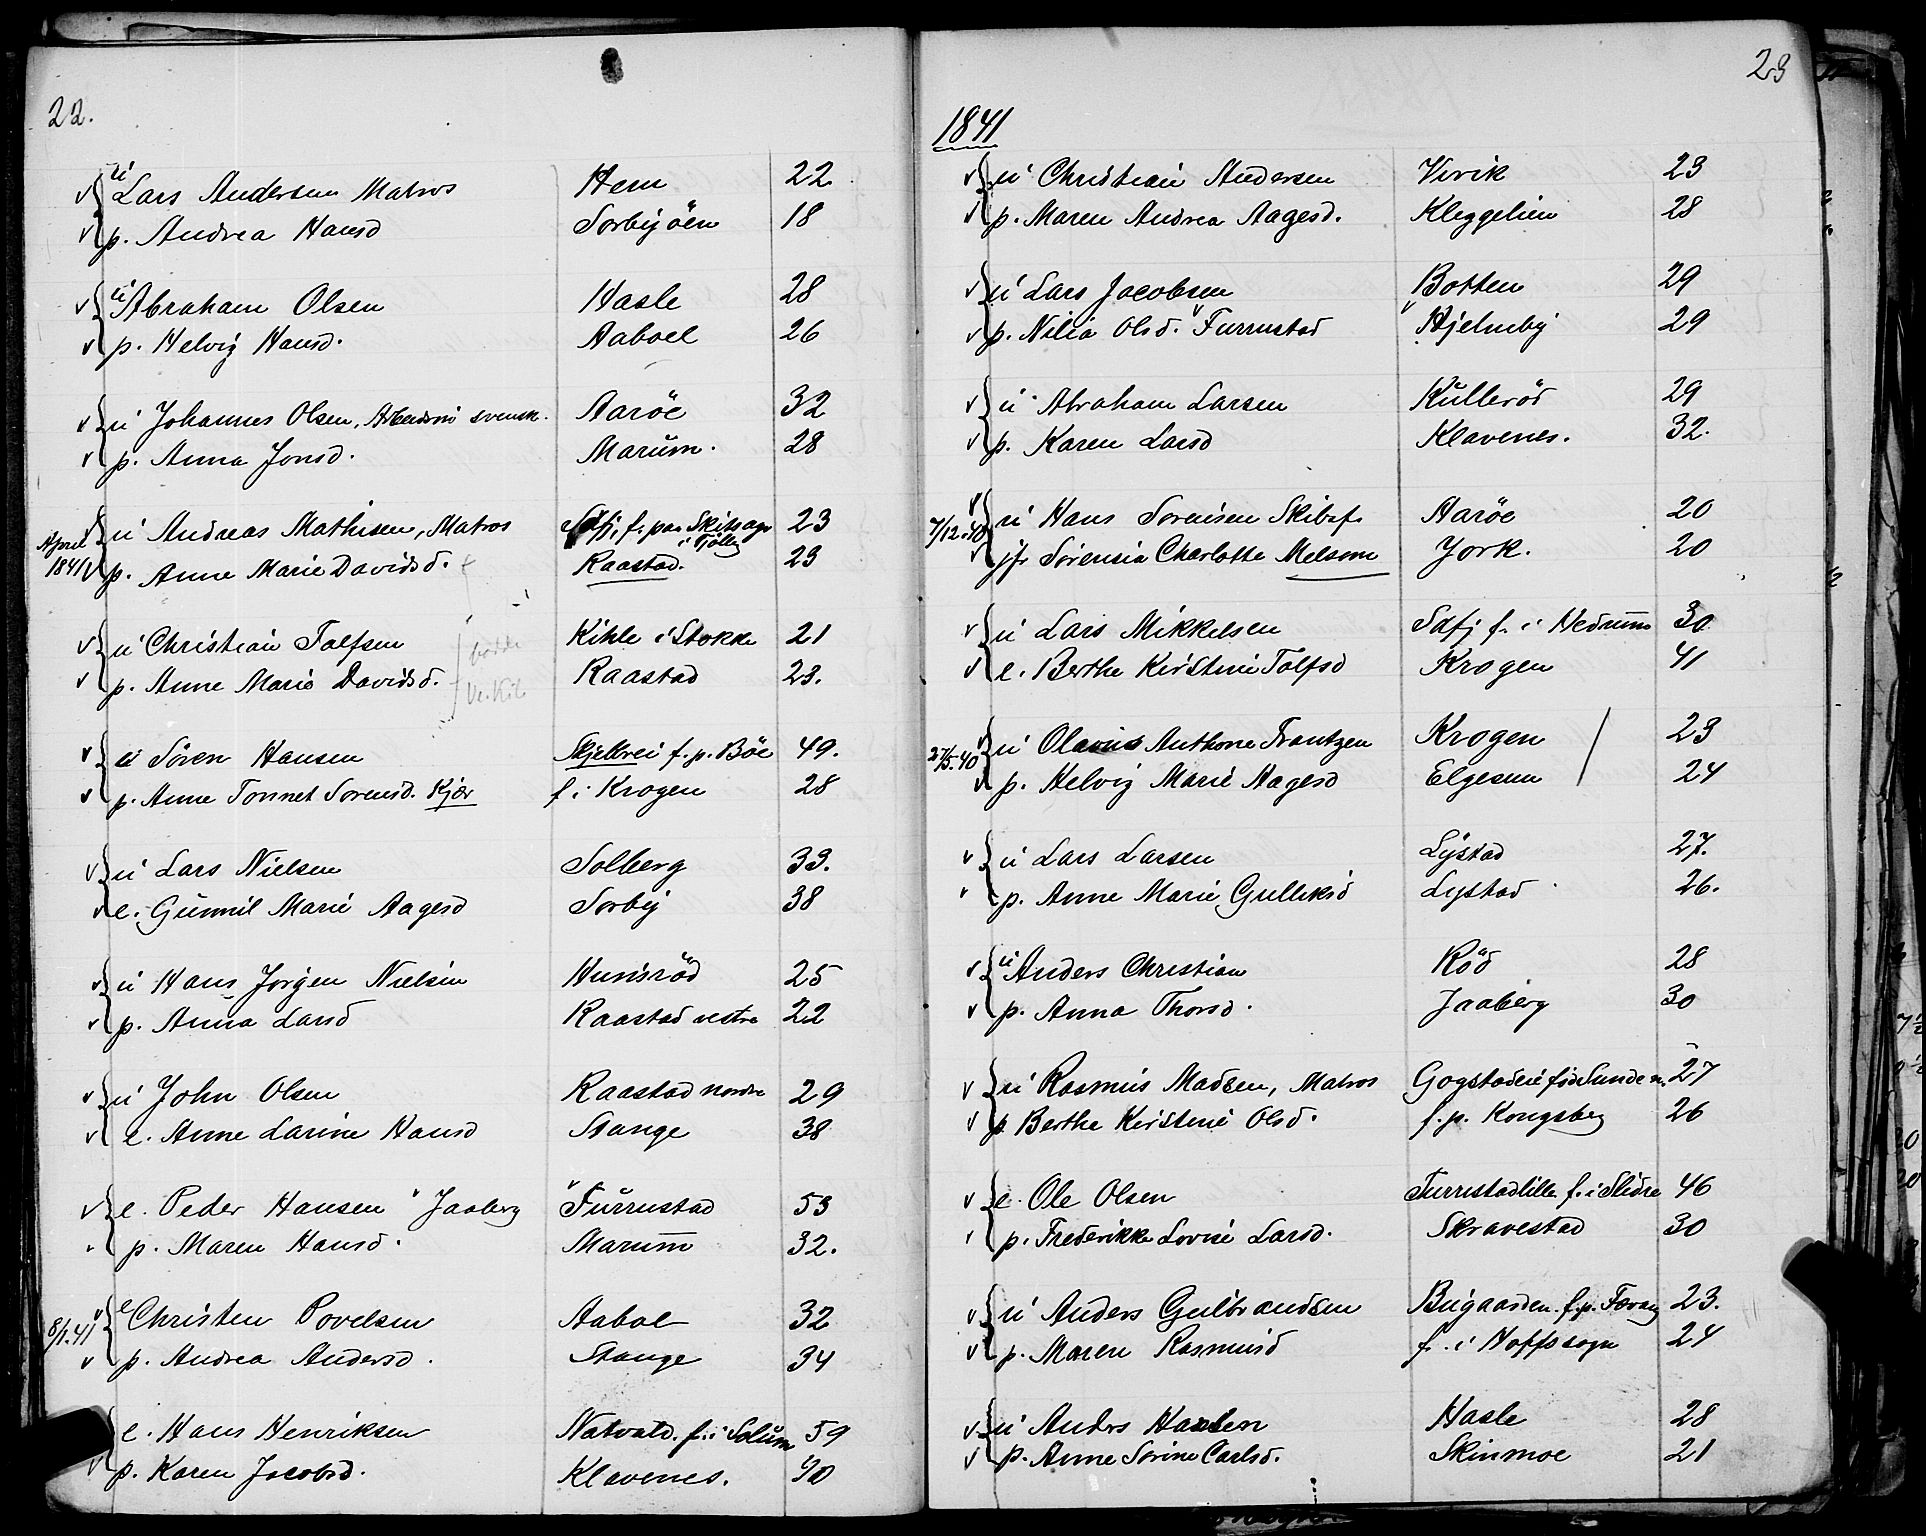 22.
ú Lars Andersen Matros Hem 22
p. Andrea Hansd Sorbyöen 18
ú Abraham Olsen Hasle 28
p. Helvig Hansd. Aaboel 26
ú Johannes Olsen, svensk. Aaröe 32
p. Anna Jonsd. Marum. 28
ú Andreas Mathisen, Matros Sdfj. f. paa Skitsagr i Tjölling 23
April 1841 p. Anne Marie Davidsd. Raastad. 23
ú Christian Tolfsen Kihle i Stokke 21
p. Anne Marie Davidsd. Raastad 23.
ú Sören Hansen Skjelbrei f. p. Böe 49.
p. Anne Tonnet Sorensd. Kjær f. i Krogen 28
ú Lars Nielsen Solberg 33.
e. Gunnil Marie Aagesd Sorby 38
ú Hans Jorgen Nielsen Hunsröd 25
p. Anna Larsd Raastad vestre 22
ú John Olsen Raastad nordre 29
e. Anne Larine Hansd Stange 38
e. Peder Hansen " Jaaberg " Furrustad 53
p. Maren Hansd. Marum 32.
8/1.41 e Christen Povelsen Aabol 32
p. Andrea Andersd. Stange 34
e. Hans Henriksen Natvald. f. i Solum 59
p. Karen Jacobsd. Klavenes. 40
23
1841
ú Christian Andersen Virik 23
p. Maren Andrea Aagesd. Kleggelien 28
ú Lars Jacobsen Botten 29
p. Nilia Olsd. Furrustad Hjelmby 29
ú Abraham Larsen Kulleröd 29
p. Karen Larsd Klavenes. 32.
7/12.40 ú Hans Sorensen Skibsf. Aaröe 20
jfr Sörensia Charlotte Melsom York. 20
ú Lars Mikkelsen Sdfj f. i Hedrum 30
e. Berthe Kirstine Tolfsd Krogen 41
27/5.40 ú Olavus Anthone Frantzen Krogen 23
p. Helvig Marie Aagesd Elgesem 24
ú Lars Larsen Lystad 27.
p. Anne Marie Gulliksd Lystad 26.
ú Anders Christian Röd 28
p. Anna Thorsd. Jaaberg 30
ú Rasmus Madsen, Matros Gogstadeie född Sunde 27
p. Berthe Kirstine Olsd. f. p. Kongsberg 26
e. Ole Olsen Furrustadlille f. i Slidre 46
p. Frederikke Lovise Larsd. Skravestad 30
ú Anders Gulbrandsen Bugaarden f. p. 23.
p. Maren Rasmusd f. i Hoffssogn 24
ú Anders Hansen Hasle 28
p. Anne Sorine Carlsd. Skinmoe 21